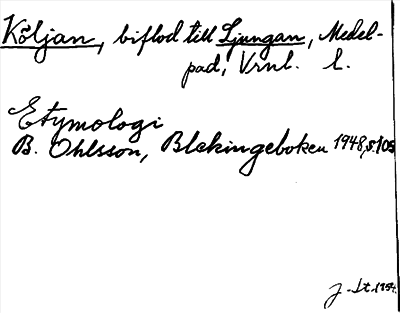 Köljan, biflod till Ljungan, Medel-
pad, Vrnl. l.
Etymologi
B. Ohlsson, Blekingeboken 1948, s. 105
J. Lt. 1954.